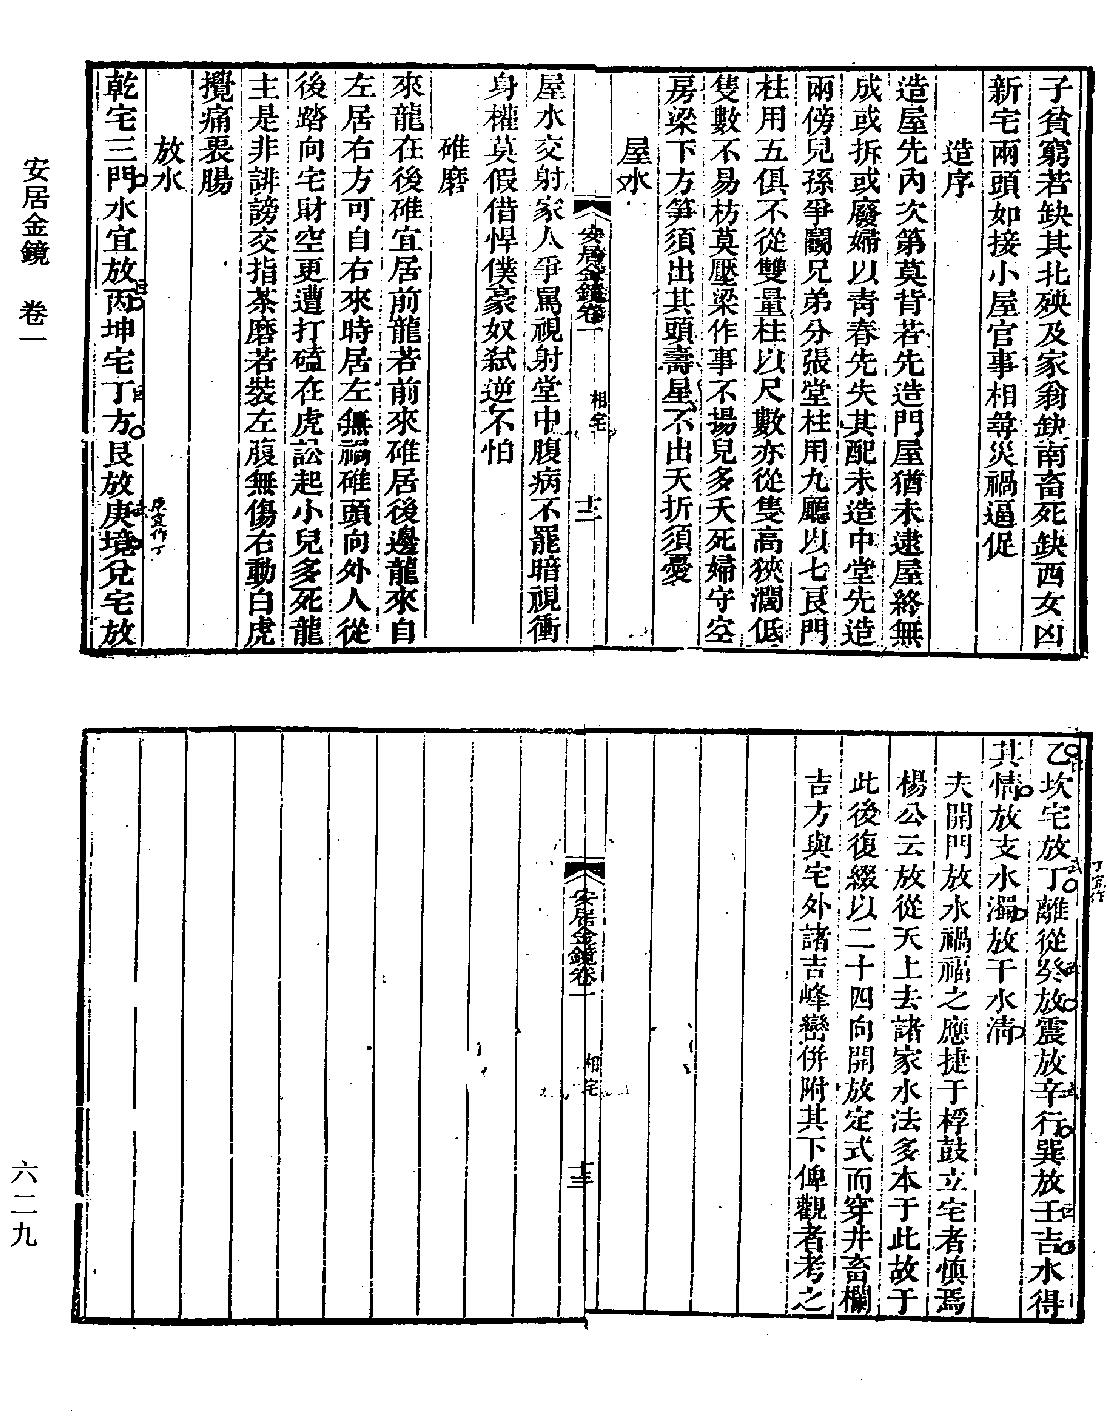 安居金鏡 卷一
子貧窮若缺其北殃及家翁缺南畜死缺西女凶
新宅兩頭如接小屋官事相尋災禍逼促
造序
造屋先內次第莫背若先造門屋猶未逮屋終無
成或拆或廢婦以青春先失其配未造中堂先造
兩傍兒孫爭鬭兄弟分張堂柱用九廳以七良門
柱用五俱不從雙量柱以尺數亦從隻高狹濶低
隻數不易枋莫壓梁作事不揚兒多夭死婦守空
房梁下方笋須出其頭壽星不出夭折須憂
屋水
安居金鏡卷一 相宅 十二
屋水交射家人爭罵視射堂中腹病不罷暗視衝
身權莫假借悍僕豪奴弒逆不怕
碓磨
來龍在後碓宜居前龍若前來碓居後邊龍來自
左居右方可自右來時居左無禍碓頭向外人從
後踏向宅財空更遭打磕在虎訟起小兒多死龍
主是非誹謗交指茶磨若裝左腹無傷右動白虎
攪痛畏腸
放水
乾宅三門水宜放丙坤宅丁方艮放庚境兌宅放
庚宜作丁
乙坎宅放丁離從癸放震放辛行巽放壬吉水得
丁宜作
其情放支水濁放干水清
夫開門放水禍福之應捷于桴鼓立宅者慎焉
楊公云放從天上去諸家水法多本于此故于
此後復綴以二十四向開放定式而穿井畜欄
吉方與宅外諸吉峰巒併附其下俾觀者考之
安居金鏡卷一 相宅 十三
六二九